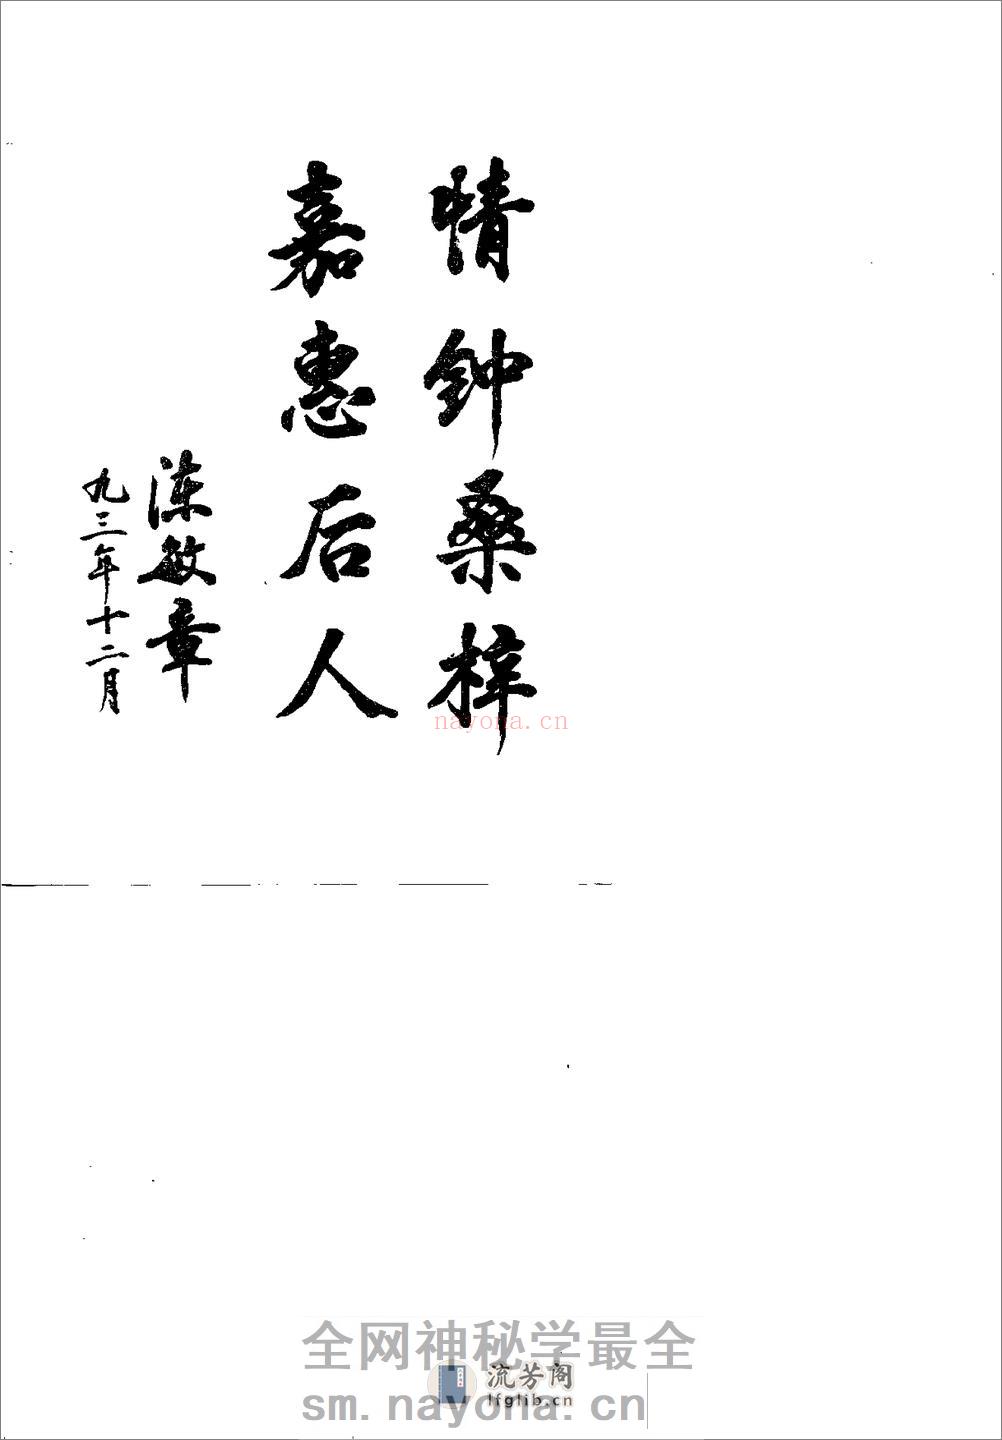 情钟桑梓
嘉惠后人
陈敏章
九三年十二月
nayona.cn
全网神秘学最全
流芳阁
lfglib.cn
sm.nayona.cn